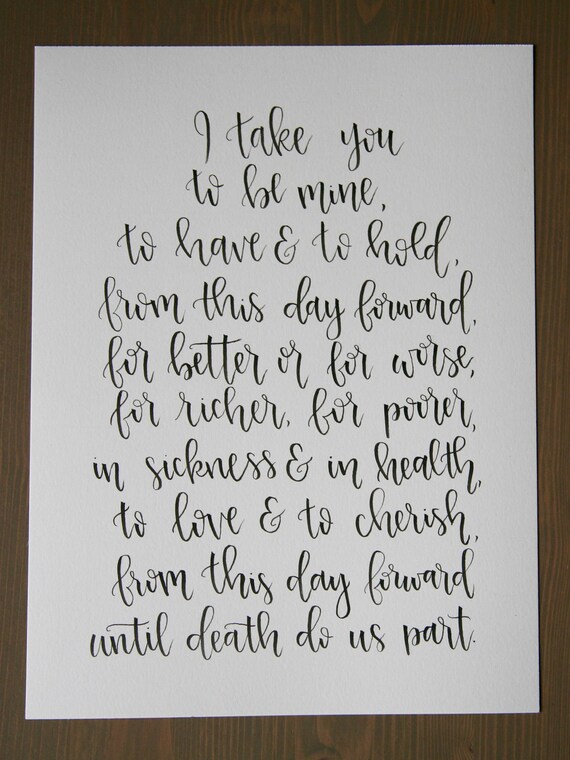 I take you
to be mine,
to have & to hold,
from this day forward,
for better or for worse,
for richer, for poorer,
in sickness & in health,
to love & to cherish,
from this day forward
until death do us part.